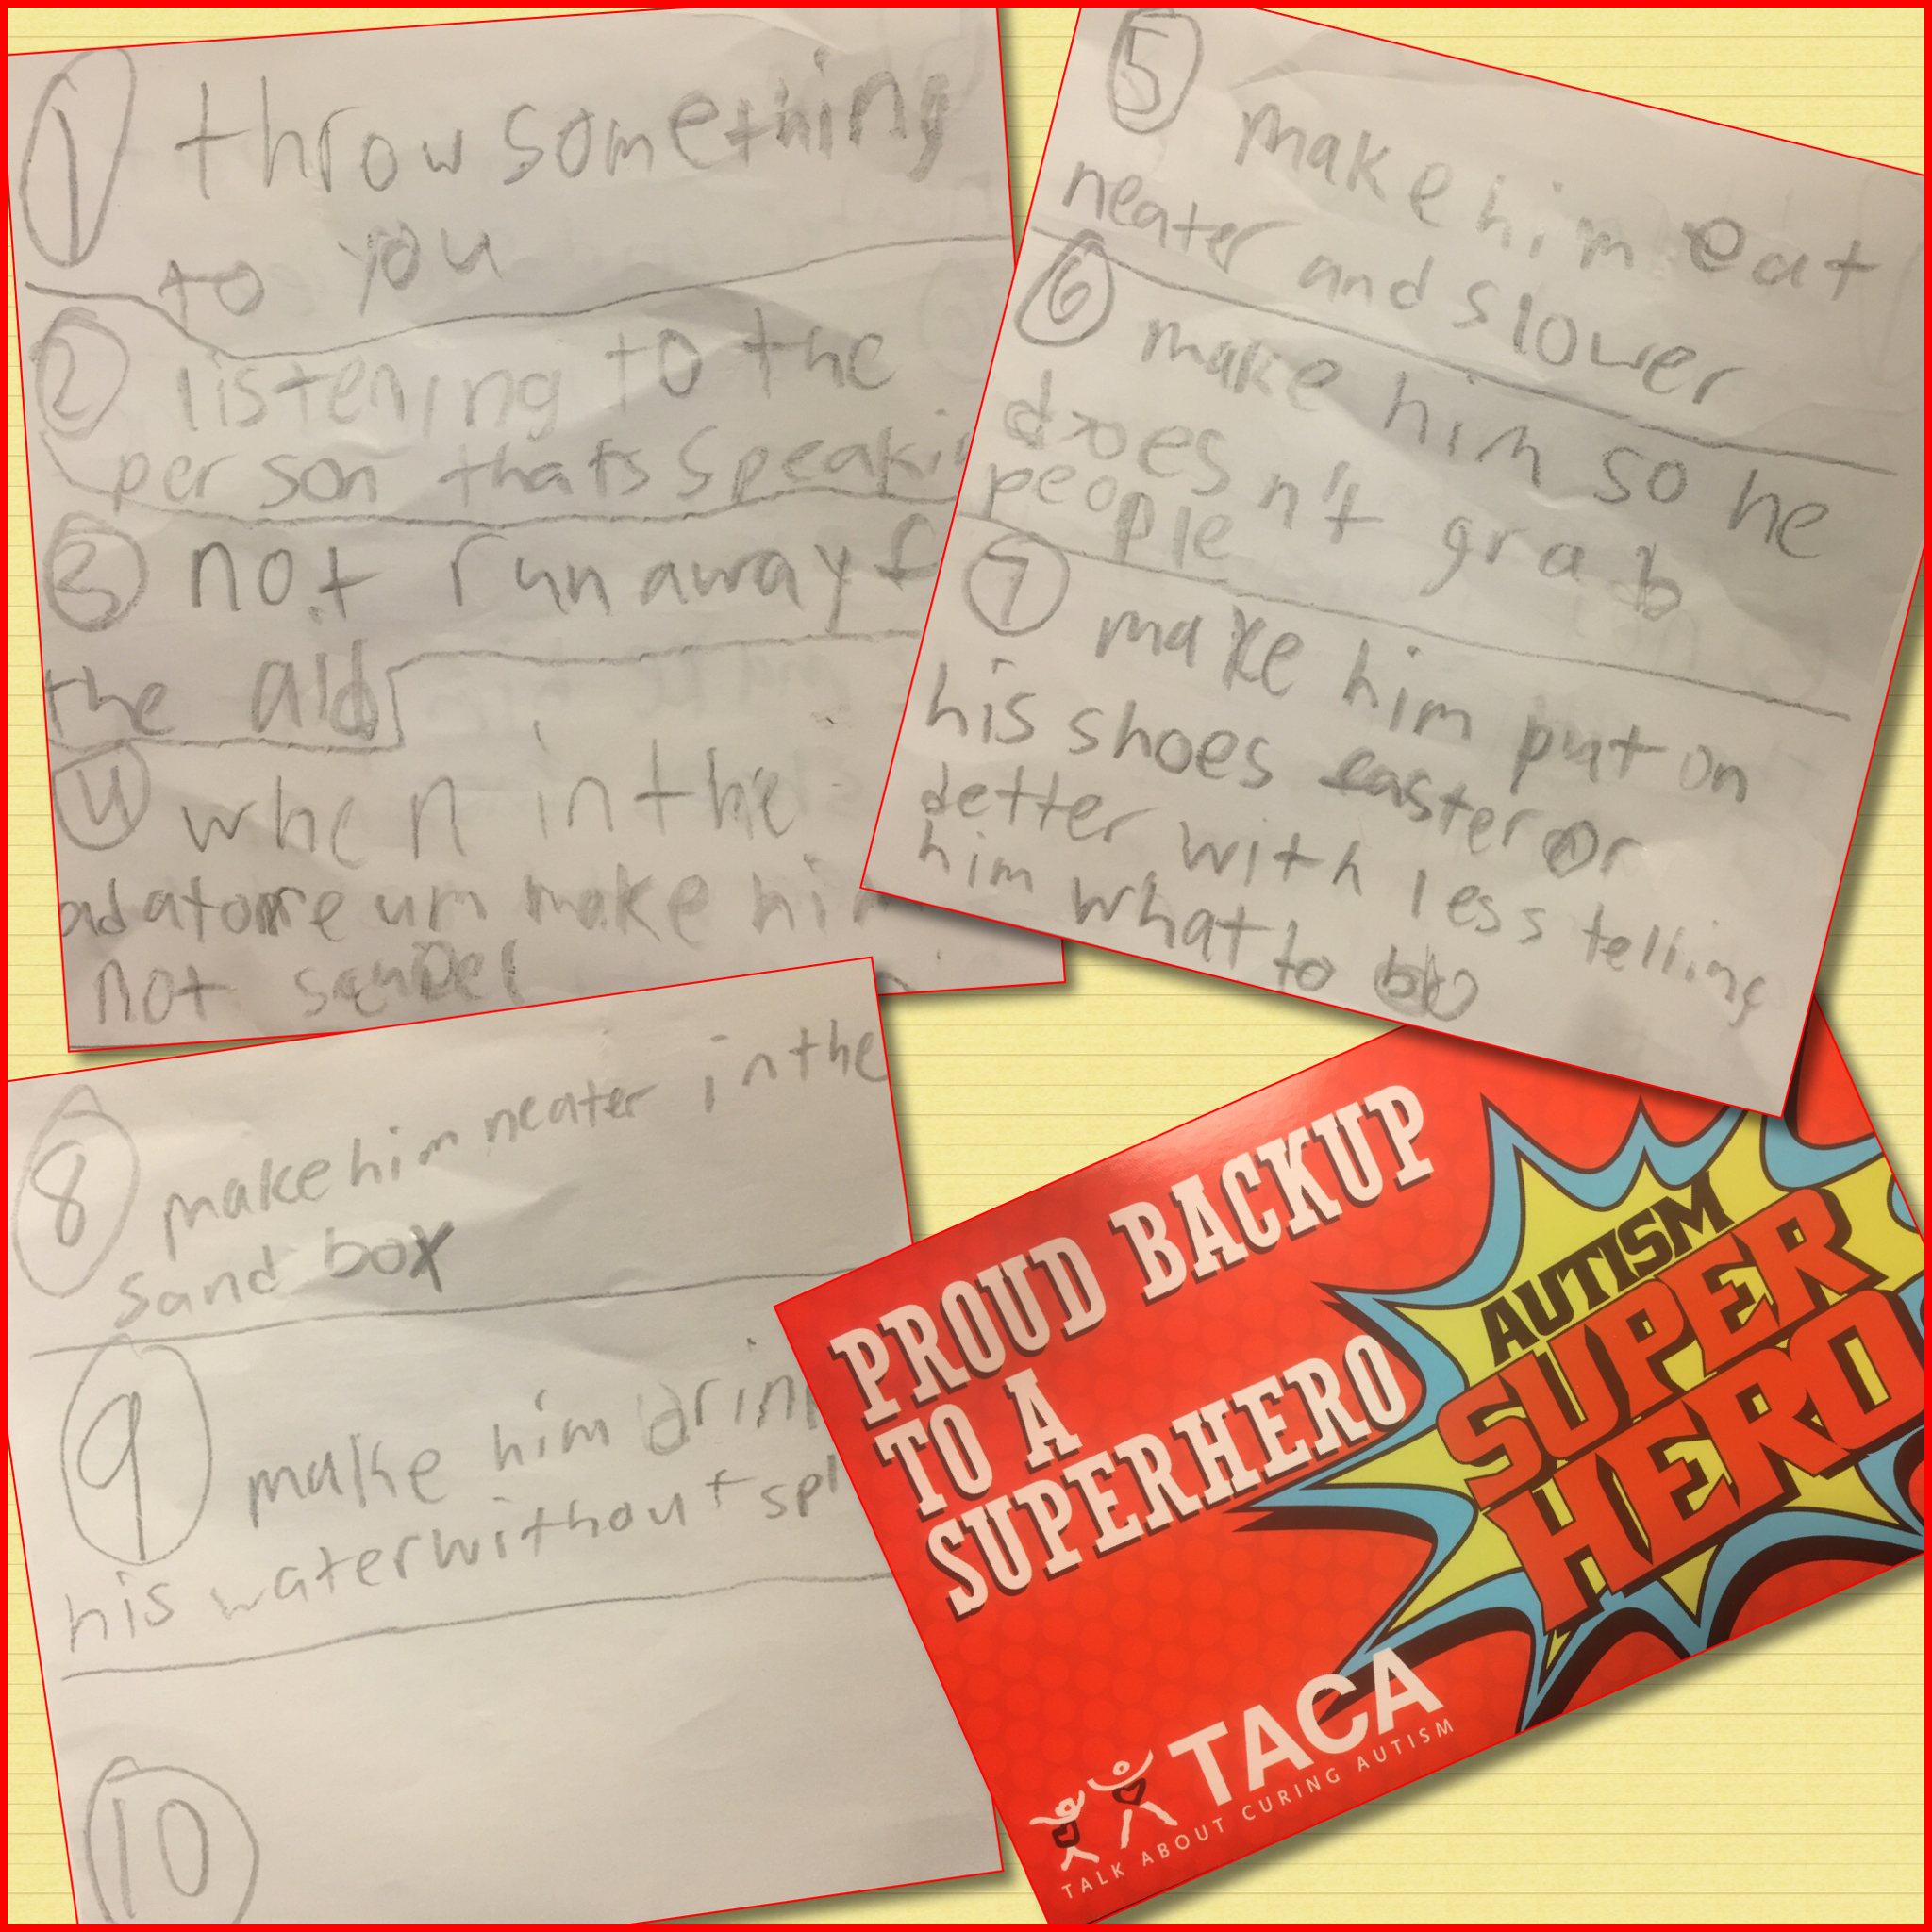 1 throw something
to you
2 listening to the
person thats speaki
3 not run away f
the
4 when in the
make him
not
5 make him eat
neater and slower
6 make him so he
doesn't grab
people
7 make him put on
his shoes easter or
better with less telling
him what to
8 make him neater in the
sand box
9 make him drin
his water without spl
10
PROUD BACKUP
TO A
SUPERHERO
AUTISM
SUPER
HERO
TACA
TALK ABOUT CURING AUTISM